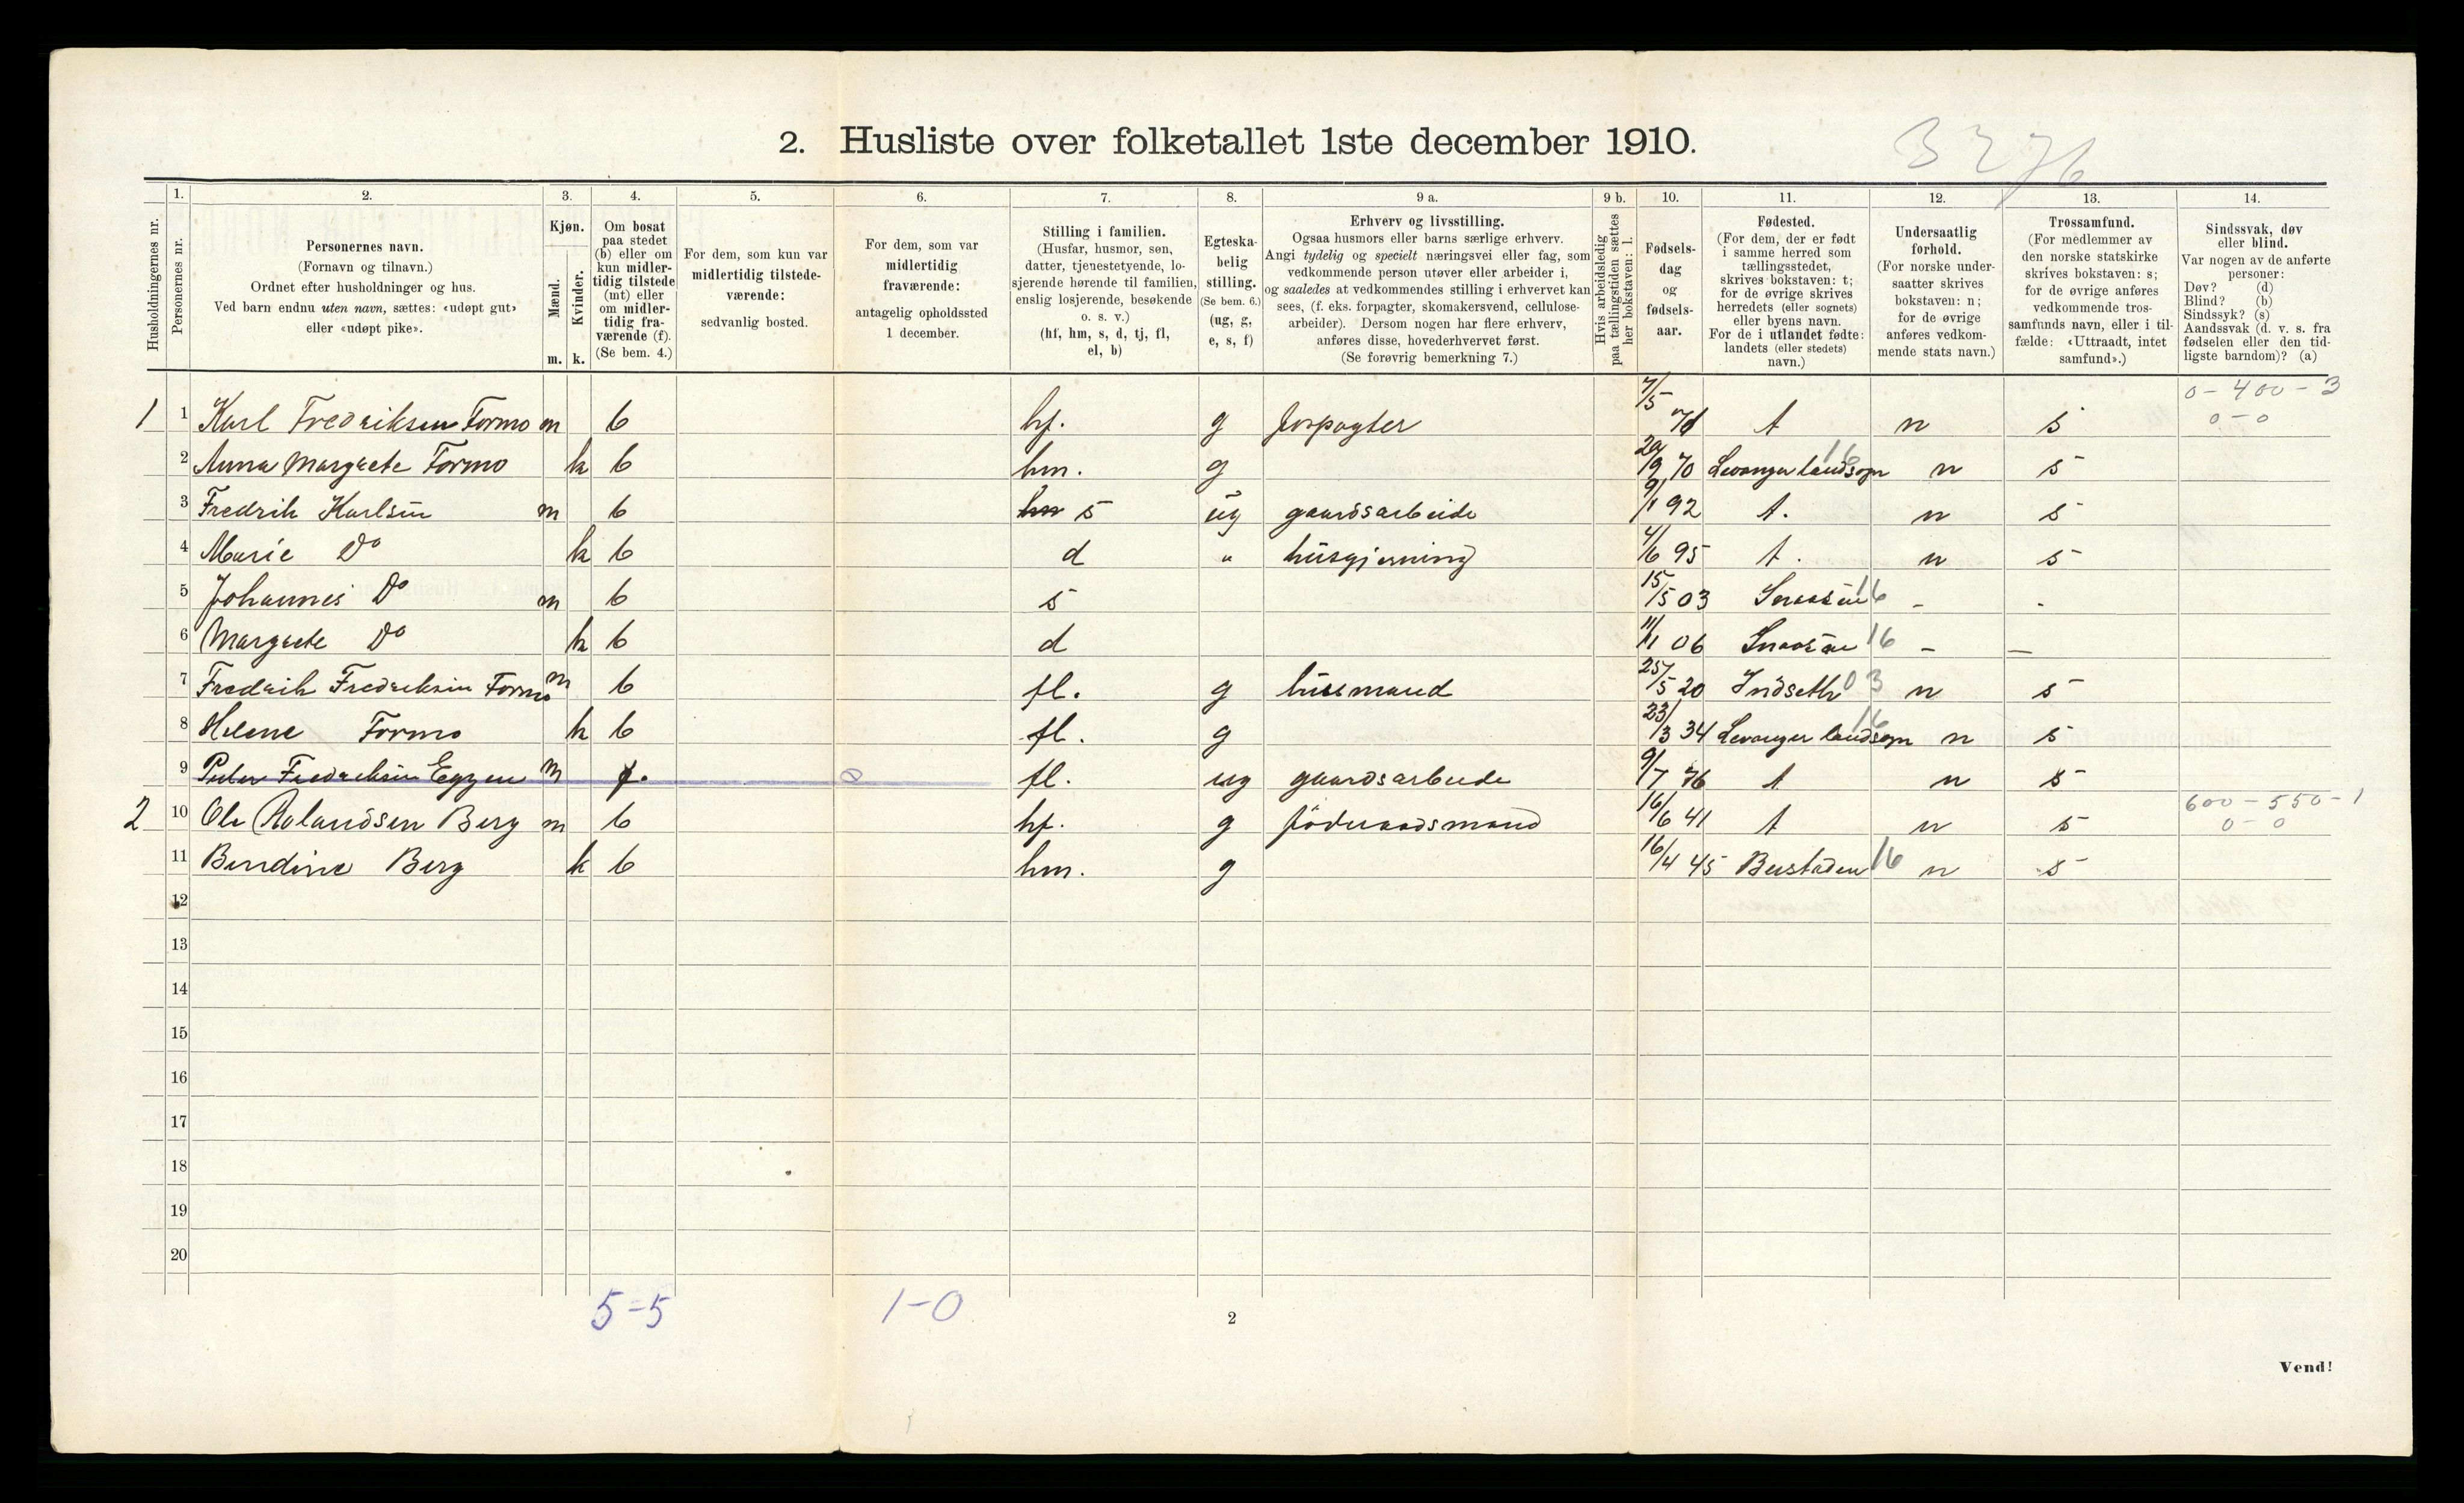 3276
2. Husliste over folketallet 1ste december 1910.
Husholdningernes nr.
1. Personernes nr.
2. Personernes navn.
(Fornavn og tilnavn.)
Ordnet efter husholdninger og hus.
Ved barn endnu uten navn, sættes: «udøpt gut»
eller «udøpt pike».
3. Kjøn.
Mænd. m.
Kvinder. k.
4. Om bosat
paa stedet
(b) eller om
kun midler-
tidig tilstede
(mt) eller
om midler-
tidig fra-
værende (f).
(Se bem. 4.)
5. For dem, som kun var
midlertidig tilstede-
værende:
sedvanlig bosted.
6. For dem, som var
midlertidig
fraværende:
antagelig opholdssted
1 december.
7. Stilling i familien.
(Husfar, husmor, søn,
datter, tjenestetyende, lo-
sjerende hørende til familien,
enslig losjerende, besøkende
o. s. v.)
(hf, hm, s, d, tj, fl,
el, b)
8. Egteska-
belig
stilling.
(Se bem. 6.)
(ug, g,
e, s, f)
9 a. Erhverv og livsstilling.
Ogsaa husmors eller barns særlige erhverv.
Angi tydelig og specielt næringsvei eller fag, som
vedkommende person utøver eller arbeider i,
og saaledes at vedkommendes stilling i erhvervet kan
sees, (f. eks. forpagter, skomakersvend, cellulose-
arbeider). Dersom nogen har flere erhverv,
anføres disse, hovederhvervet først.
(Se forøvrig bemerkning 7.)
9 b. Hvis arbeidsledig
paa tællingstiden sættes
her bokstaven: l.
10. Fødsels-
dag
og
fødsels-
aar.
11. Fødested.
(For dem, der er født
i samme herred som
tællingsstedet,
skrives bokstaven: t;
for de øvrige skrives
herredets (eller sognets)
eller byens navn.
For de i utlandet fødte:
landets (eller stedets)
navn.)
12. Undersaatlig
forhold.
(For norske under-
saatter skrives
bokstaven: n;
for de øvrige
anføres vedkom-
mende stats navn.)
13. Trossamfund.
(For medlemmer av
den norske statskirke
skrives bokstaven: s;
for de øvrige anføres
vedkommende tros-
samfunds navn, eller i til-
fælde: «Uttraadt, intet
samfund».)
14. Sindssvak, døv
eller blind.
Var nogen av de anførte
personer:
Døv? (d)
Blind? (b)
Sindssyk? (s)
Aandssvak (d. v. s. fra
fødselen eller den tid-
ligste barndom)? (a)
0 - 400 - 3
1 1 Karl Fredriksen Formo m b hf. g forpagter 7/5 t n s 0 - 0
2 Anna Margrete Formo k b hm. g /9 70 Levanger landsogn 16 n s
3 Fredrik Karlsen m b hm s ug gaardsarbeide 9/1 92 t. n s
4 Marie Do k b d " husgjerning 4/6 95 t. n s
5 Johannes Do m b s 15/5 03 Snaasen 16 - -
6 Margrete Do k b d 11/11 06 Snaasen 16 - -
7 Fredrik Fredriksen Formo m b fl. g husmand 25/5 20 Indseth 03 n s
8 Helene Formo k b fl. g 23/3 34 Levanger landsogn 16 n s
9 Peter Fredriksen Eggen m f. fl. ug gaardsarbeide 9/7 76 t n s
600 - 550 - 1
2 10 Ole Rolandsen Berg m b hf. g föderaadsmand 16/6 41 t n s 0 - 0
11 Berdine Berg k b hm. g 16/4 45 Beistaden 16 n s
12
13
14
15
16
17
18
19
20
5 - 5 1 - 0
2
Vend!